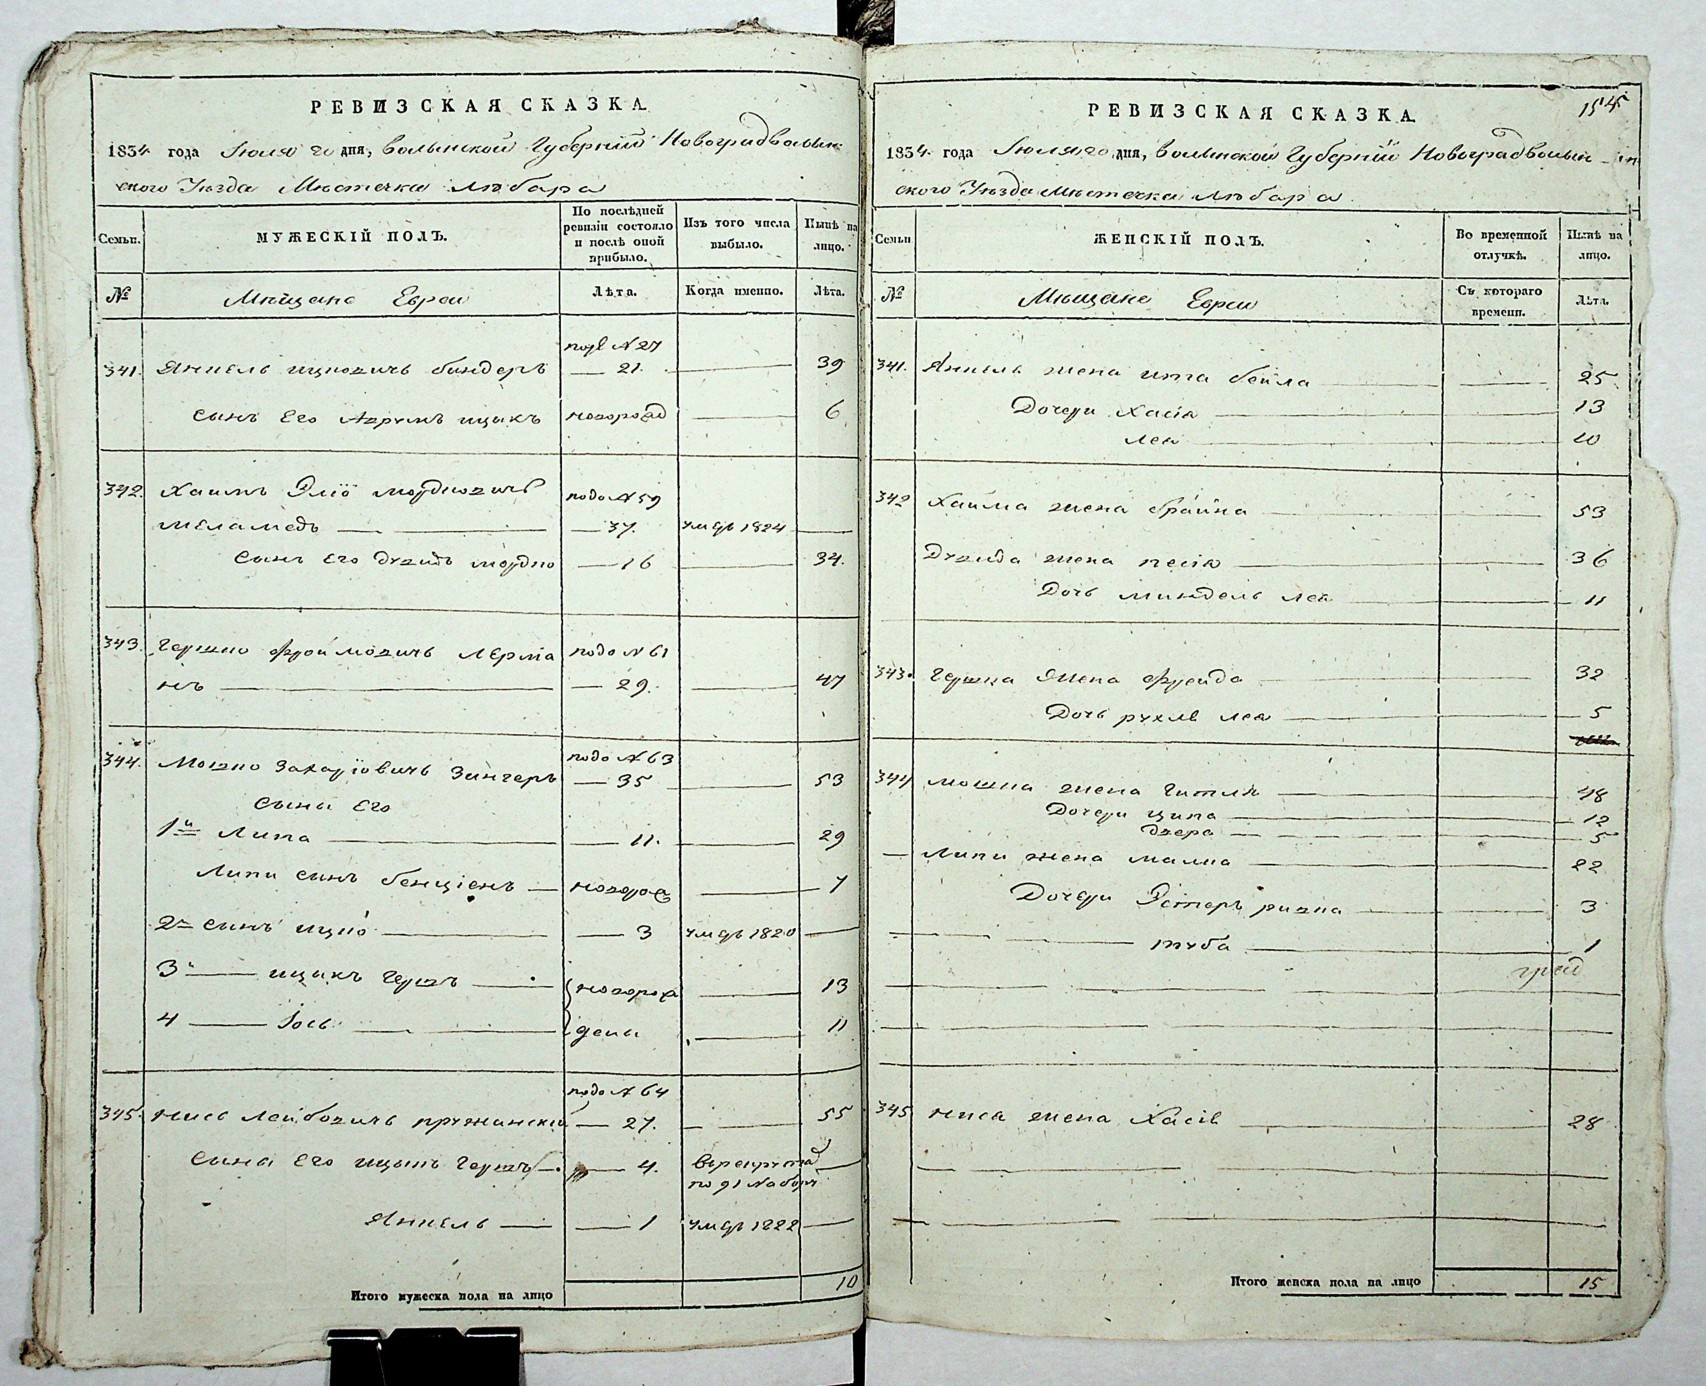 РЕВИЗСКАЯ СКАЗКА
1834 года Июля 20 дня, Волынской Губернiи Новоградволын
ского Уѣзда Мѣстечка Любара
Семьи.
МУЖЕСКІЙ ПОЛЪ.
По послѣдней ревизіи состояло и послѣ оной прибыло.
Изъ того числа выбыло.
Нынѣ на лицо.
№
Мѣщане Евреи
Лѣта.
Когда именно.
Лѣта.
341. Янкель Ицковичъ биндеръ подъ N 27 21. 39
сынъ Его Аврумъ ицыкъ новорожд 6
342. Хаимъ Элiо мордковичъ подо N 59
меламедъ 37. умеръ 1824
сынъ Его давидъ мордко 16 34.
343. Гершко фроимовичъ лерма подо N 61
нъ 29. 47
344. Мошко Захарiовичъ Зингеръ подо N 63 35 53
Сыны Его
1й Липа 11. 29
Липи сынъ бенцiенъ новорож 7
2й сынъ ицко 3 умеръ 1820
3й ицыкъ Гершъ новорож 13
4 Iось дены 11
345. нись лейбовичъ пружинскiй подо N 64 27. 55
Сыны Его ицыкъ Гершъ 4. В рекруты
по 91 Набору
Янкель 1 умеръ 1822
Итого мужеска пола на лицо 10
154
РЕВИЗСКАЯ СКАЗКА
1834 года Июля 20 дня, Волынской Губернiи Новоградволын
ского Уѣзда Мѣстечка Любара
Семьи
ЖЕНСКІЙ ПОЛЪ.
Во временной отлучкѣ.
Нынѣ на лицо.
№
Мѣщане Евреи
Съ котораго времени.
Лѣта.
341. Янкеля жена ита бейла 25
Дочери Хася 13
лея 10
342 Хаима жена брайна 53
Давида жена песiя 36
Дочь миндель лея 11
343. Гершка жена фрейда 32
Дочь рухля лея 5
344 мошка жена Гитля 48
Дочери ципа 12
двера 5
Липи жена малка 22
Дочери Эстеръ ривка 3
туба 1
345 нися жена Хасiя 28
Итого женска пола на лицо 15